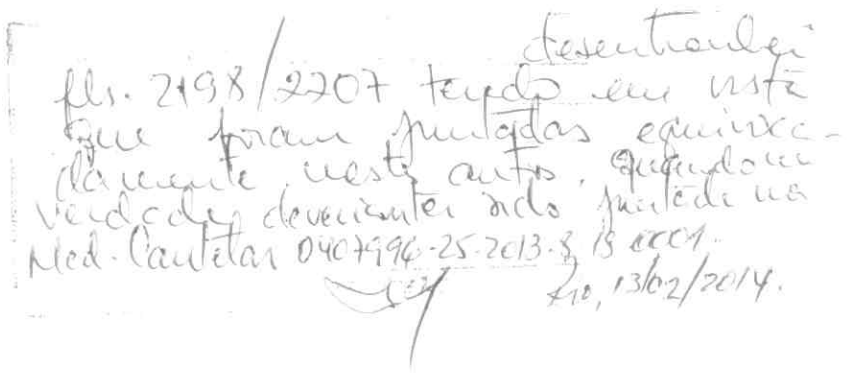 desentranhei
fls. 2198/2207 tendo em vista
que foram juntadas equivoca-
damente nestes autos, quando na
verdade deveriam ter sido juntada na
Med. Cautelar 0407996-25.2013.8.19.0001.
Rio, 13/02/2014.